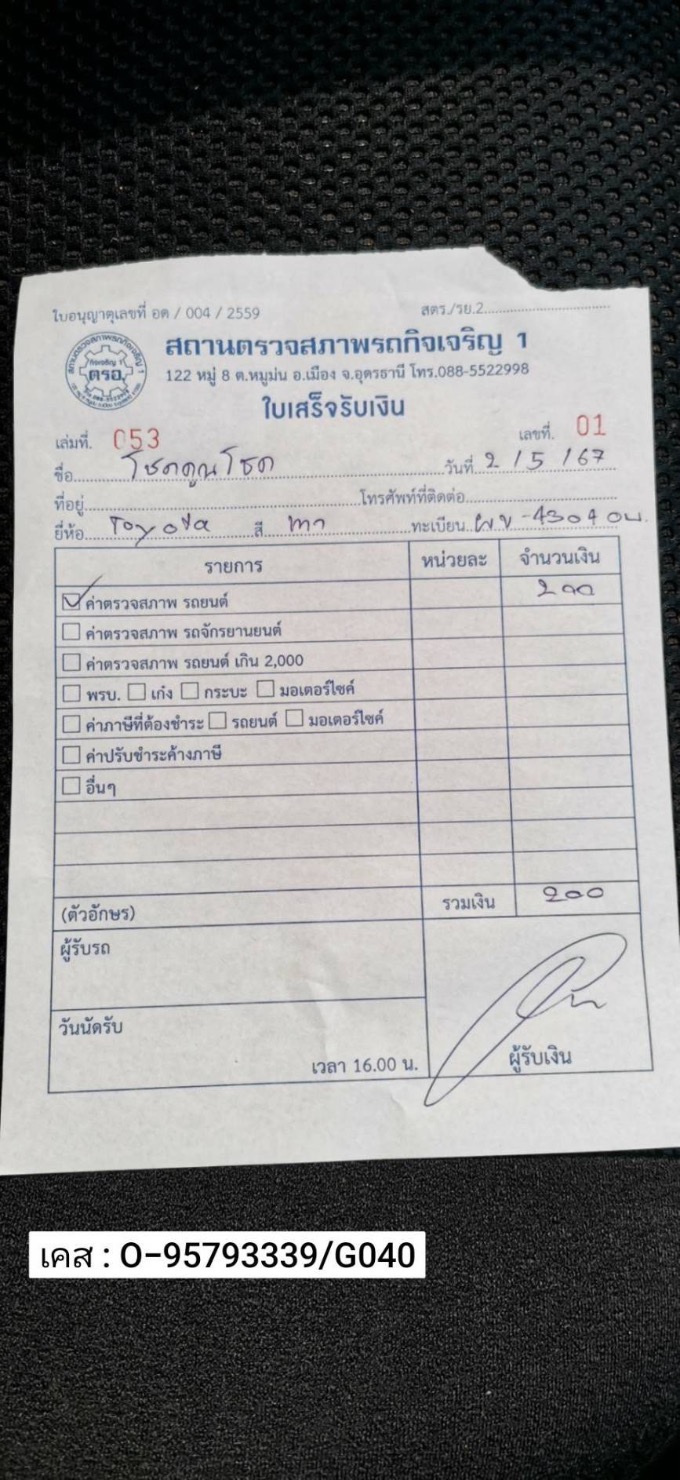 ใบอนุญาตเลขที่ อด / 004 / 2559 สตร./รย.2
สถานตรวจสภาพรถกิจเจริญ 1
ตรอ.
122 หมู่ 8 ต.หมูม่น อ.เมือง จ.อุดรธานี โทร.088-5522998
ใบเสร็จรับเงิน
เล่มที่. 053 เลขที่. 01
ชื่อ โชคคูณโชค วันที่ 2 / 5 / 67
ที่อยู่ โทรศัพท์ที่ติดต่อ
ยี่ห้อ Toyota สี เทา ทะเบียน ผข-4304 อน.
รายการ หน่วยละ จำนวนเงิน
ค่าตรวจสภาพ รถยนต์ 200
ค่าตรวจสภาพ รถจักรยานยนต์
ค่าตรวจสภาพ รถยนต์ เกิน 2,000
พรบ. เก๋ง กระบะ มอเตอร์ไซค์
ค่าภาษีที่ต้องชำระ รถยนต์ มอเตอร์ไซค์
ค่าปรับชำระค้างภาษี
อื่นๆ
(ตัวอักษร) รวมเงิน 200
ผู้รับรถ
วันนัดรับ
เวลา 16.00 น. ผู้รับเงิน
เคส : O-95793339/G040